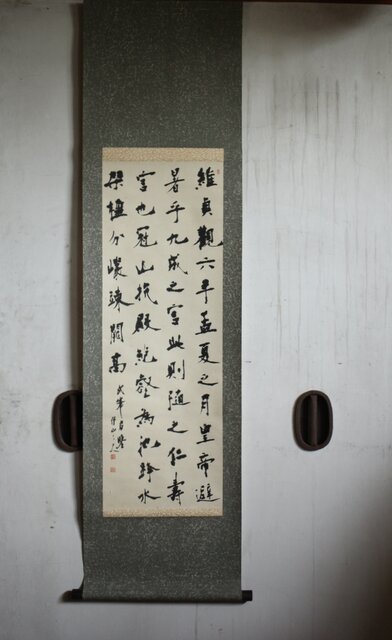 維貞觀六年孟夏之月皇帝避
暑乎九成之宮此則隨之仁壽
宮也冠山抗殿絕壑為池跨水
架楹分巖竦闕高